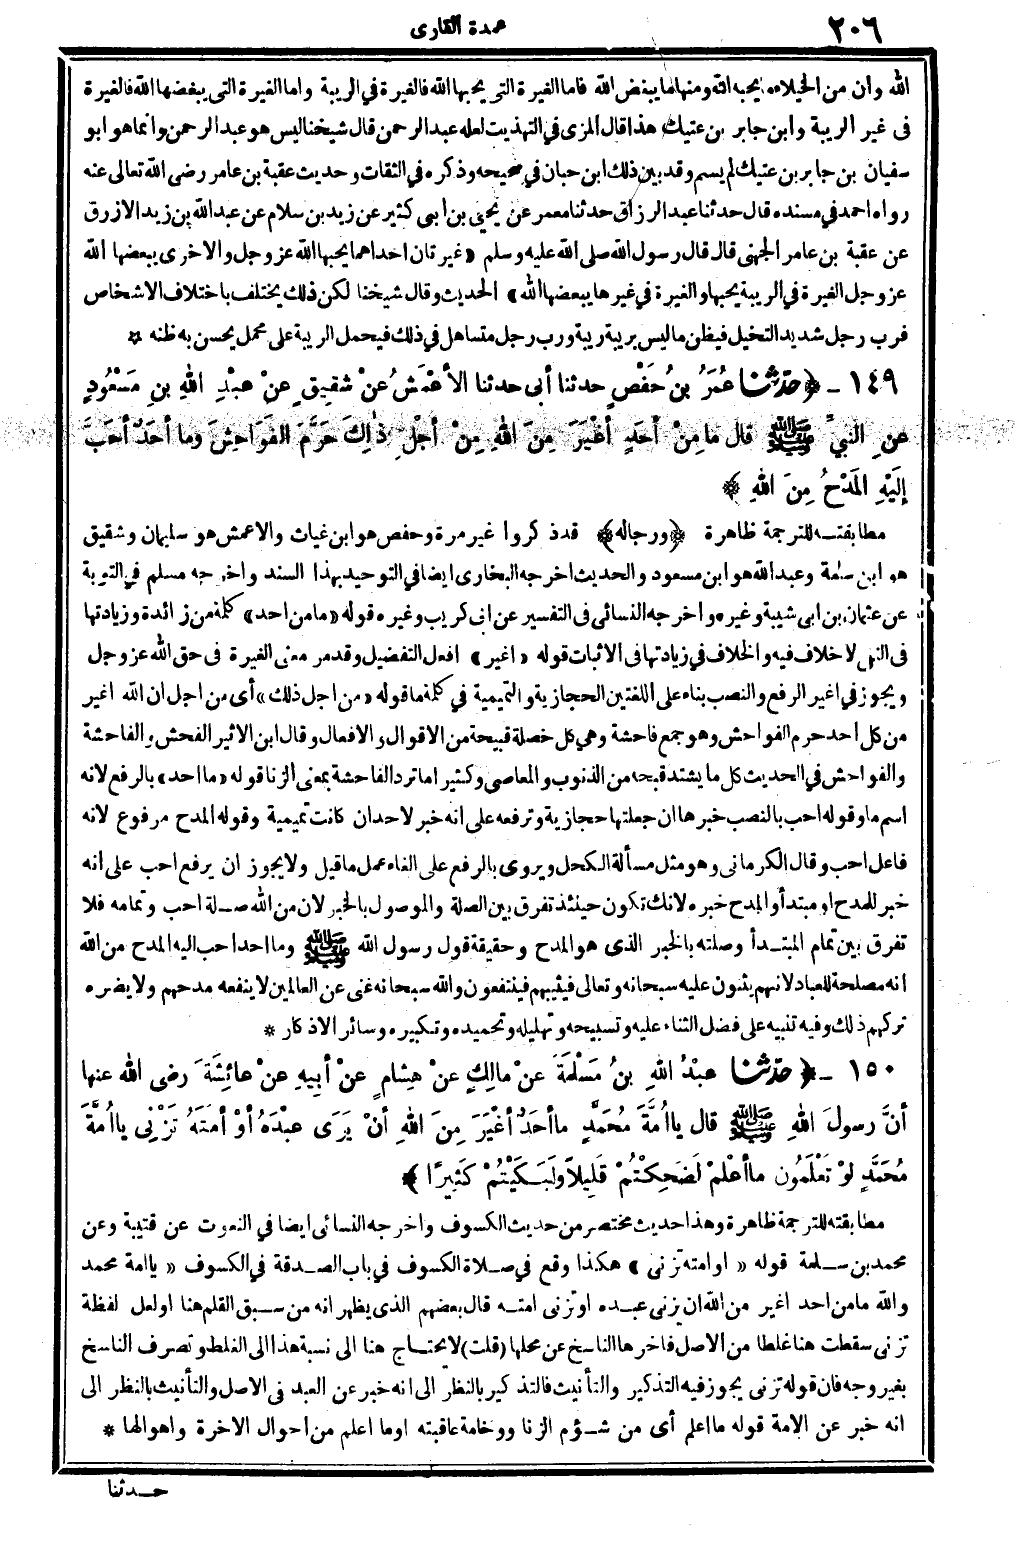 ٢٠٦ عمدة القارى
الله وأن من الخيلاء ما يحبه الله ومنها ما يبغض الله فاما الغيرة التى يحبها الله فالغيرة فى الريبة واما الغيرة التى يبغضها الله فالغيرة
فى غير الريبة وابن جابر بن عتيك هذا قال المزى فى التهذيب لعله عبد الرحمن قال شيخنا ليس هو عبد الرحمن وانما هو ابو
سفيان بن جابر بن عتيك لم يسم وقد بين ذلك ابن حبان فى صحيحه وذكره فى الثقات وحديث عقبة بن عامر رضى الله تعالى عنه
رواه احمد فى مسنده قال حدثنا عبد الرزاق حدثنا معمر عن يحيى بن أبى كثير عن زيد بن سلام عن عبد الله بن زيد الازرق
عن عقبة بن عامر الجهنى قال قال رسول الله صلى الله عليه وسلم « غيرتان احداهما يحبها الله عز وجل والاخرى يبغضها الله
عز وجل الغيرة فى الريبة يحبها والغيرة فى غيرها يبغضها الله » الحديث وقال شيخنا لكن ذلك يختلف باختلاف الاشخاص
فرب رجل شديد التخيل فيظن ما ليس بريبة ريبة ورب رجل متساهل فى ذلك فيحمل الريبة على محمل يحسن به ظنه *
١٤٩ - ﴿ حدّثنا عُمَرُ بنُ حَفْصٍ حدثنا أبى حدثنا الأعْمَشُ عنْ شقيقٍ عنْ عبْدِ اللهِ بنِ مَسْعُودٍ
عنِ النبيِّ ﷺ قال مَا مِنْ أحَدٍ أغْيَرَ مِنَ اللهِ مِنْ أجْلِ ذٰلِكَ حَرَّمَ الفَوَاحِشَ وما أحَدٌ أحَبَّ
إلَيْهِ المَدْحُ مِنَ اللهِ ﴾
مطابقته للترجمة ظاهرة ﴿ورجاله﴾ قد ذكروا غير مرة وحفص هو ابن غياث والاعمش هو سليمان وشقيق
هو ابن سلمة وعبد الله هو ابن مسعود والحديث اخرجه البخارى ايضا فى التوحيد بهذا السند واخرجه مسلم فى التوبة
عن عثمان بن ابى شيبة وغيره واخرجه النسائى فى التفسير عن ابى كريب وغيره قوله « ما من احد » كلمة من زائدة وزيادتها
فى النفى لا خلاف فيه والخلاف فى زيادتها فى الاثبات قوله « اغير » افعل التفضيل وقد مر معنى الغيرة فى حق الله عز وجل
ويجوز فى اغير الرفع والنصب بناء على اللغتين الحجازية والتميمية فى كلمة ما قوله « من اجل ذلك » أى من اجل ان الله اغير
من كل احد حرم الفواحش وهو جمع فاحشة وهى كل خصلة قبيحة من الاقوال والافعال وقال ابن الاثير الفحش والفاحشة
والفواحش فى الحديث كل ما يشتد قبحه من الذنوب والمعاصى وكثيرا ما ترد الفاحشة بمعنى الزنا قوله « ما احد » بالرفع لانه
اسم ما وقوله احب بالنصب خبرها ان جعلتها حجازية وترفعه على انه خبر لاحد ان كانت تميمية وقوله المدح مرفوع لانه
فاعل احب وقال الكرمانى وهو مثل مسألة الكحل ويروى بالرفع على الفاء عمل ما قيل ولا يجوز ان يرفع احب على انه
خبر للمدح او مبتدأ والمدح خبره لانك تكون حينئذ تفرق بين الصلة والموصول بالخبر لان من الله صلة احب وتمامه فلا
تفرق بين تمام المبتدأ وصلته بالخبر الذى هو المدح وحقيقة قول رسول الله ﷺ وما احد احب اليه المدح من الله
انه مصلحة للعباد لانهم يثنون عليه سبحانه وتعالى فيثيبهم فينتفعون والله سبحانه غنى عن العالمين لا ينفعه مدحهم ولا يضره
تركهم ذلك وفيه تنبيه على فضل الثناء عليه وتسبيحه وتهليله وتحميده وتكبيره وسائر الاذكار *
١٥٠ - ﴿ حدّثنا عبْدُ اللهِ بنُ مَسْلمَةَ عنْ مالِكٍ عنْ هِشامٍ عنْ أبِيهِ عنْ عائِشَةَ رضى الله عنها
أنَّ رسولَ اللهِ ﷺ قال ياأُمَّةَ مُحَمَّدٍ ماأحَدٌ أغْيَرَ مِنَ اللهِ أنْ يَرَى عبْدَهُ أوْ أمَتَهُ تَزْنِى ياأُمَّةَ
مُحَمَّدٍ لوْ تَعْلَمُونَ ماأعْلَمُ لَضَحِكْتُمْ قَلِيلاً ولَبَكَيْتُمْ كَثِيرًا ﴾
مطابقته للترجمة ظاهرة وهذا حديث مختصر من حديث الكسوف واخرجه النسائى ايضا فى النعوت عن قتيبة وعن
محمد بن سلمة قوله « او امته تزنى » هكذا وقع فى صلاة الكسوف فى باب الصدقة فى الكسوف « يا امة محمد
والله ما من احد اغير من الله ان يزنى عبده او تزنى امته قال بعضهم الذى يظهر انه من سبق القلم هنا او لعل لفظة
تزنى سقطت هنا غلطا من الاصل فاخرها الناسخ عن محلها (قلت) لا يحتاج هنا الى نسبة هذا الى الغلط وتصرف الناسخ
بغير وجه فان قوله تزنى يجوز فيه التذكير والتأنيث فالتذكير بالنظر الى انه خبر عن العبد فى الاصل والتأنيث بالنظر الى
انه خبر عن الامة قوله ما اعلم أى من شؤم الزنا ووخامة عاقبته او ما اعلم من احوال الاخرة واهوالها *
حدثنا